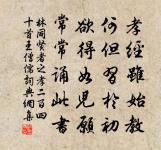 孝經雖始教
何但習於初
欲得如兒願
常常誦此書
林同賢者之孝二百四
十首王僧儒詞典網集